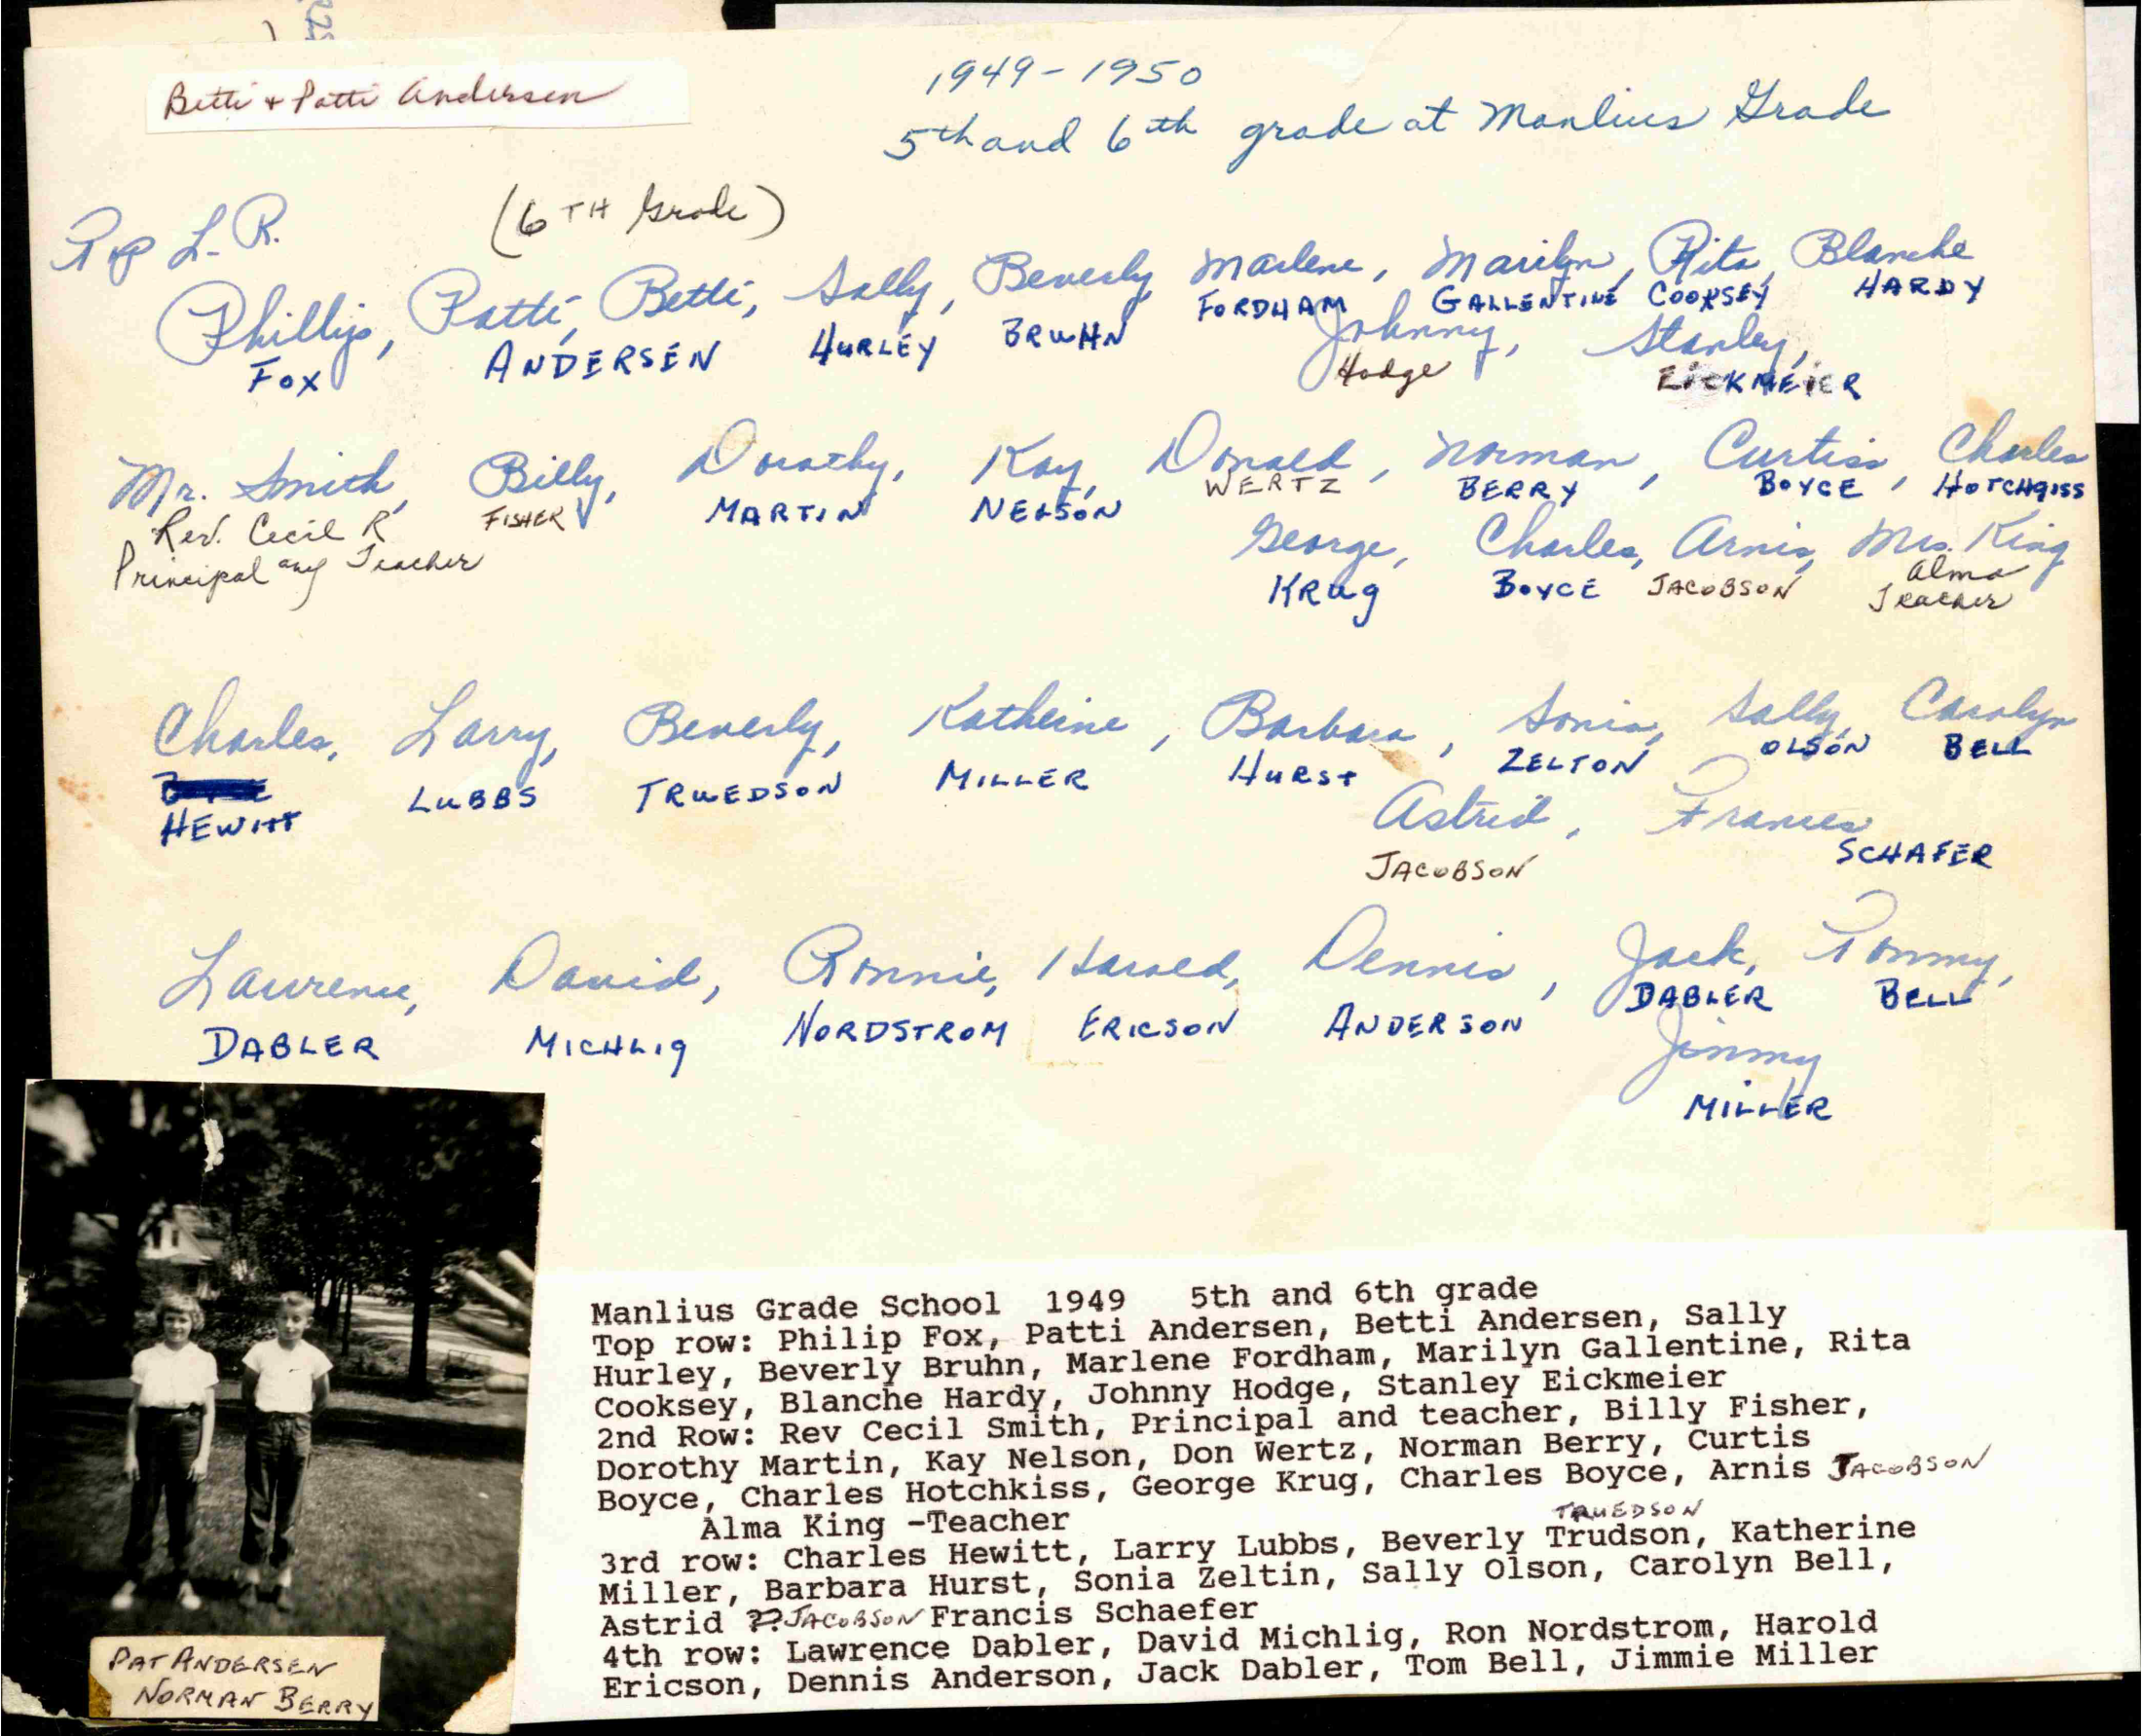 Betti + Patti Andersen
1949-1950
5th and 6th grade at Manlius Grade
(6TH Grade)
Top L. R.
Phillip, Patti, Betti, Sally, Beverly, Marlene, Marilyn, Rita, Blanche
FOX ANDERSEN HURLEY BRUHN FORDHAM GALLENTINE COOKSEY HARDY
Johnny, Stanley,
Hodge EICKMEIER
Mr. Smith, Billy, Dorothy, Kay, Donald, Norman, Curtiss, Charles
Rev. Cecil R FISHER MARTIN NELSON WERTZ BERRY BOYCE, HOTCHGISS
Principal and Teacher
George, Charles, Arnis, Mrs. King
KRUG BOYCE JACOBSON Alma
Teacher
Charles, Larry, Beverly, Katheine, Barbara, Sonia, Sally, Carolyn
HEWITT LUBBS TRUEDSON MILLER HURST ZELTON OLSON BELL
Astrid, Frances
JACOBSON SCHAFER
Lawrence, David, Ronnie, Harold, Dennis, Jack, Tommy,
DABLER MICHLIG NORDSTROM ERICSON ANDERSON DABLER BELL
Jimmy
MILLER
PAT ANDERSEN
NORMAN BERRY
Manlius Grade School 1949 5th and 6th grade
Top row: Philip Fox, Patti Andersen, Betti Andersen, Sally
Hurley, Beverly Bruhn, Marlene Fordham, Marilyn Gallentine, Rita
Cooksey, Blanche Hardy, Johnny Hodge, Stanley Eickmeier
2nd Row: Rev Cecil Smith, Principal and teacher, Billy Fisher,
Dorothy Martin, Kay Nelson, Don Wertz, Norman Berry, Curtis
Boyce, Charles Hotchkiss, George Krug, Charles Boyce, Arnis JACOBSON
Alma King -Teacher
TRUEDSON
3rd row: Charles Hewitt, Larry Lubbs, Beverly Trudson, Katherine
Miller, Barbara Hurst, Sonia Zeltin, Sally Olson, Carolyn Bell,
Astrid ?? JACOBSON Francis Schaefer
4th row: Lawrence Dabler, David Michlig, Ron Nordstrom, Harold
Ericson, Dennis Anderson, Jack Dabler, Tom Bell, Jimmie Miller